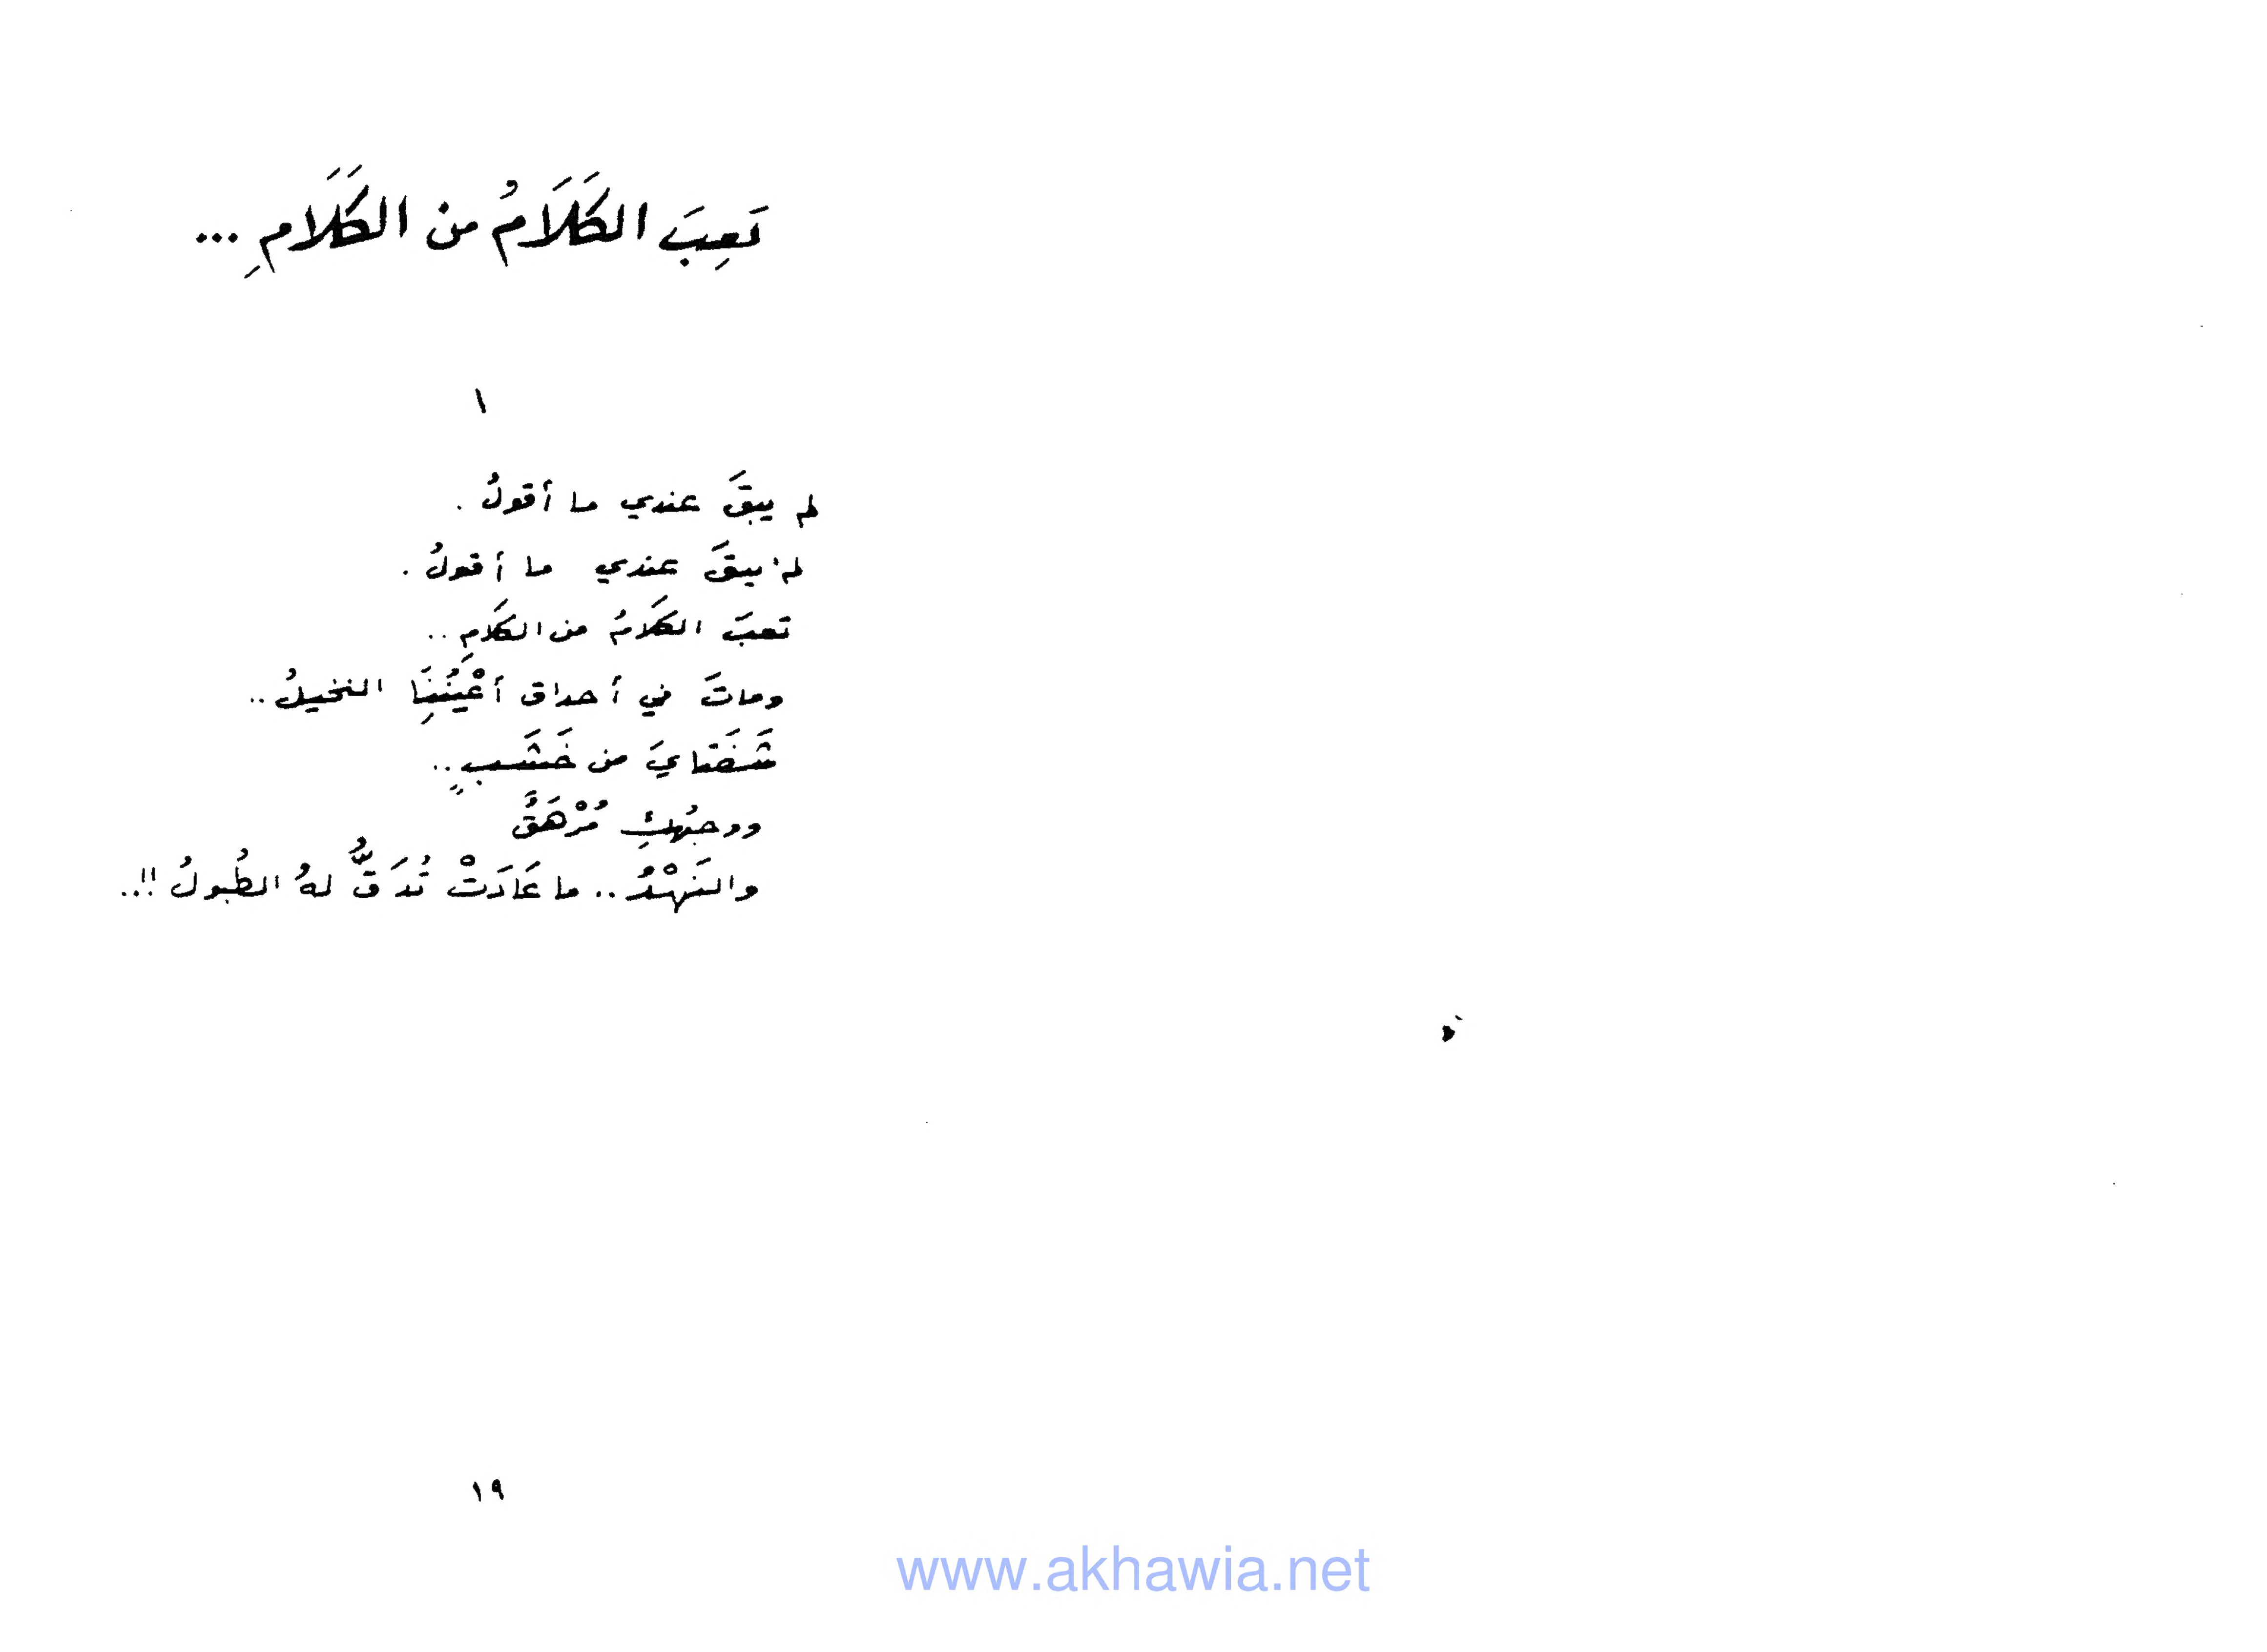 تَعِبَ الكَلَامُ من الكَلَامِ ...
١
لم يبقَ عندي ما أقولُ .
لم يبقَ عندي ما أقولُ .
تعبَ الكلَامُ من الكلَام ..
وماتَ في أحداق أَعْيُنِنَا النخيلُ ..
شَفَتَايَ من خَشَبٍ ..
ووجهُكِ مُرْهَقٌ
والنَهْدُ .. ما عَادَتْ تُدَقُّ لهُ الطُبولُ !! ..
١٩
www.akhawia.net